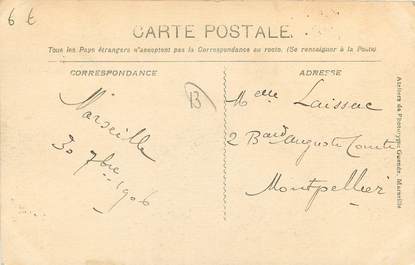 6 €
CARTE POSTALE.
Tous les Pays étrangers n'acceptent pas la Correspondance au recto. (Se renseigner à la Poste)
CORRESPONDANCE
Marseille
30 7bre
1906
B
ADRESSE
Melle Laissac
2 Bard Auguste Comte
Montpellier
Ateliers de Phototypie Guende, Marseille